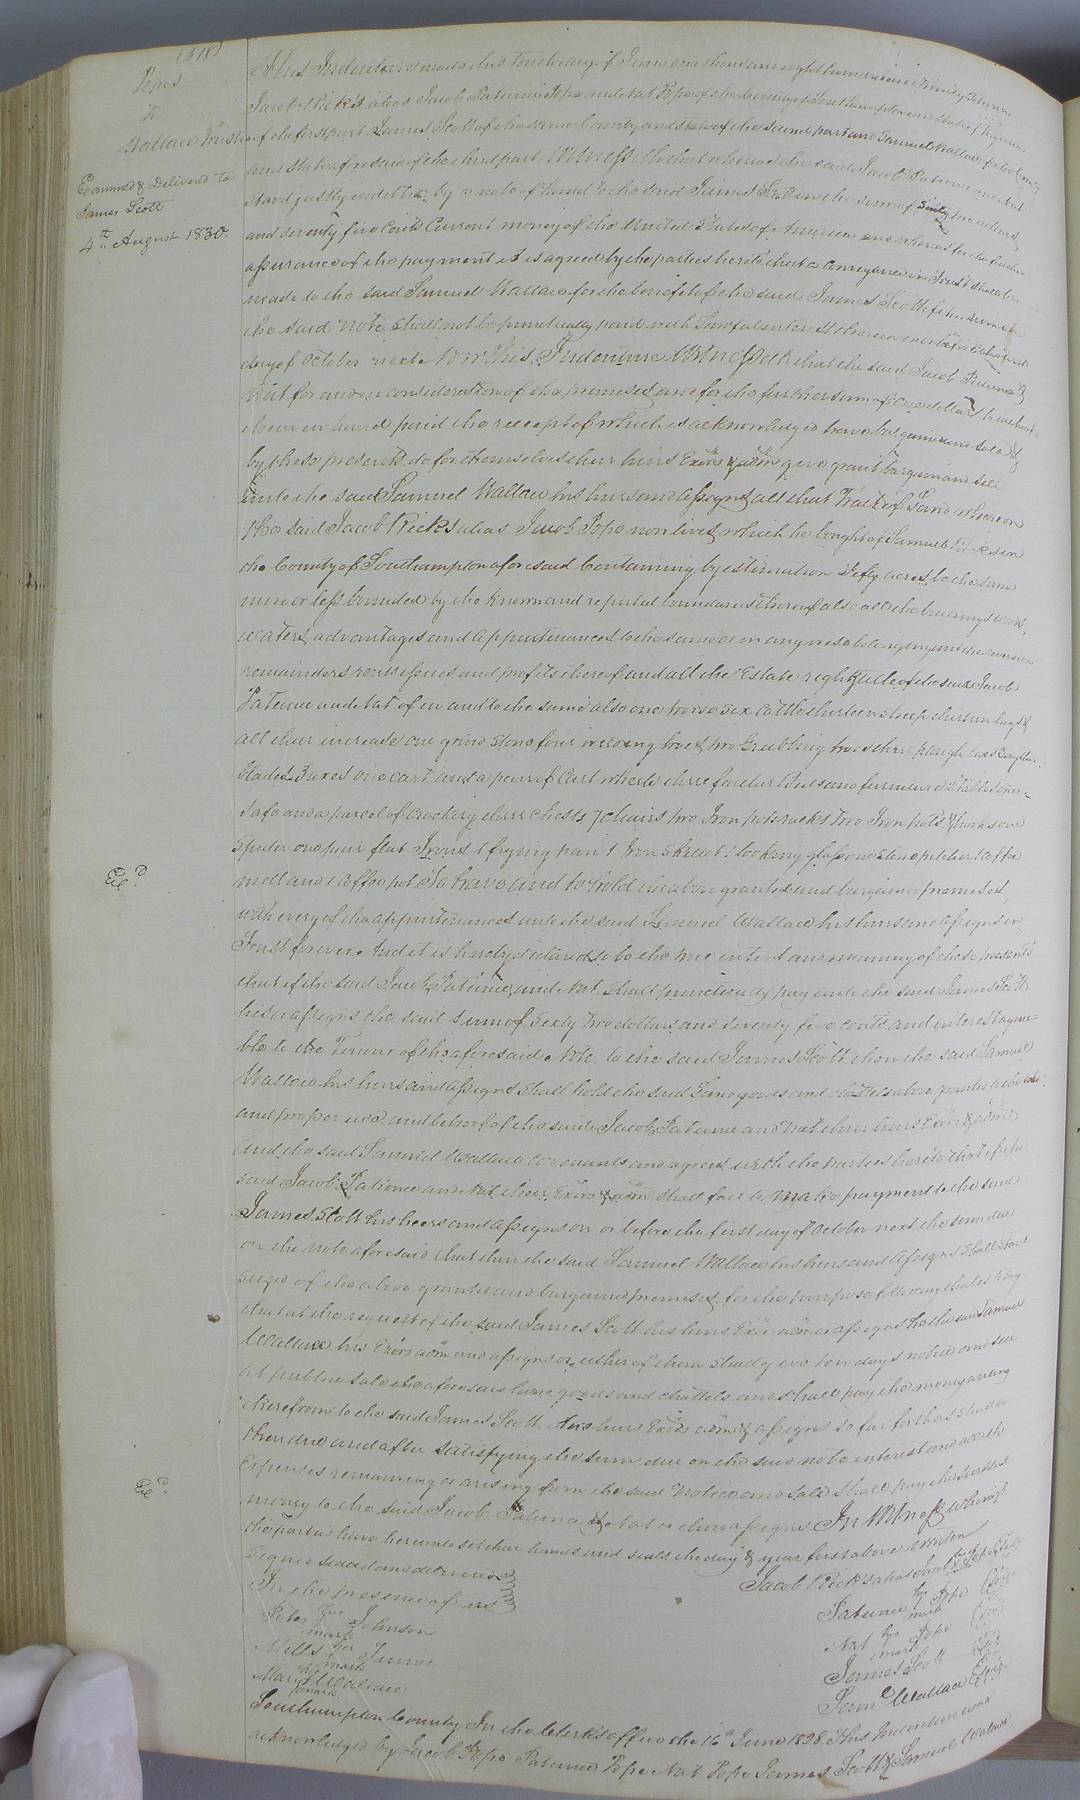 (618)
Popes
To
Wallace Trustee
Examined & Delivered to
James Scott
4th August 1830.
This Indenture made this tenth day of June one thousand eight hundred and twenty
Jacob Rick's alias Jacob Patience Pope and Nat Pope of the County of Southampton and State of Virginia
of the first part James Scott of the same County and State of the second part and Samuel Wallace of the County
and State aforesaid of the third part Witnesseth that whereas the said Jacob Patience and Nat
stand justly indebted by a note of hand to the said James Scott in the sum of Sixty two dollars
and seventy five Cents Current money of the United States of America and whereas for the further
assurance of the payment it is agreed by the parties hereto that a Conveyance in Trust shall be
made to the said Samuel Wallace for the benefit of the said James Scott if the sum
the said note shall not be punctually paid with Lawful interest thereon on or before the first
day of October next Now this Indenture Witnesseth that the said Jacob Patience &
Nat for and in consideration of the premises and for the further sum of One dollar to
them in hand paid the receipt of which is acknowledged have bargained and sold &
by these presents do for themselves their heirs Exōrs & adm̄ give grant bargain and sell
unto the said Samuel Wallace his heirs and assigns all that Tract of Land whereon
the said Jacob Ricks alias Jacob Pope now lives which he bought of Samuel in
the County of Southampton aforesaid Containing by estimation fifty acres be the same
more or less bounded by the known and reputed boundaries thereof also all the buildings woods,
waters, advantages and appurtenances to the same or in any wise belonging and the reversion
remainders rents issues and profits thereof and all the Estate right & title of the said Jacob
Patience and Nat of in and to the same also one horse six Cattle thirteen sheep thirteen hogs &
all their increase one grind stone four weeding hoes two Grubbing hoes three plough
blades 3 axes one cart and a pair of Cart wheels three feather Beds and furniture 2 tables one
safe and a parcel of Crockery three Chests 7 chairs two Iron potracks two Iron pots & hooks one
spider one pair flat Irons 1 frying pan 1 Iron skillet 1 looking glass one stone pitcher 1 Coffee
mill and 1 Coffee pot To have and to hold the above granted and bargained premises,
with every of the appurtenances unto the said Samuel Wallace his heirs and assigns in
Trust forever. And it is hereby declared to be the true intent and meaning of these presents
that if the said Jacob, Patience, and Nat shall punctually pay unto the said James Scott
his or assigns the said sum of Sixty two dollars and seventy five cents and interest agree-
ble to the Tenour of the aforesaid Note to the said James Scott then the said Samuel
Wallace his heirs and assigns shall hold the said Land goods and chattels above granted to the
and proper use and behoof of the said Jacob, Patience and Nat their heirs Exōrs & adm̄s
And the said Samuel Wallace covenants and agrees with the parties hereto that if the
said Jacob Patience and Nat their Exōrs & adm̄ shall fail to make payment to the said
James Scott his heirs and assigns on or before the first day of October next the sum due
on the note aforesaid that then the said Samuel Wallace his heirs and assigns shall stand
seized of the above granted and bargained premises for the purpose following that is to say
that at the request of the said James Scott his heirs Exōrs adm̄ or assigns the said Samuel
Wallace his Exōrs adm̄ and assigns or either of them shall give ten days notice and sell
at public sale the aforesaid land, goods and chattels and shall pay the money arising
therefrom to the said James Scott his heirs Exōrs adm̄ & assigns so far forth as shall be
then due and after satisfying the sum due on the said note interest and all the
Expenses remaining or arising from the said Notice and sale shall pay the surplus
money to the said Jacob Patience & Nat or their assigns In Witness whereof
the parties have hereunto set their hands and seals the day & year first above written
Signed sealed and delivered
In the presence of us
Peter his mark Johnson
Mills his mark Turner
Mary her mark Wallace
Jacob Rick's alias Jacob his mark Pope (Seal)
Patience her mark Pope (Seal)
Nat his mark Pope (Seal)
James Scott (Seal)
Saml Wallace (Seal)
Southampton County In the Clerk's office the 16th June 1828. This Indenture was
acknowledged by Jacob Pope Patience Pope Nat Pope James Scott & Samuel Wallace
Exd.
Exd.